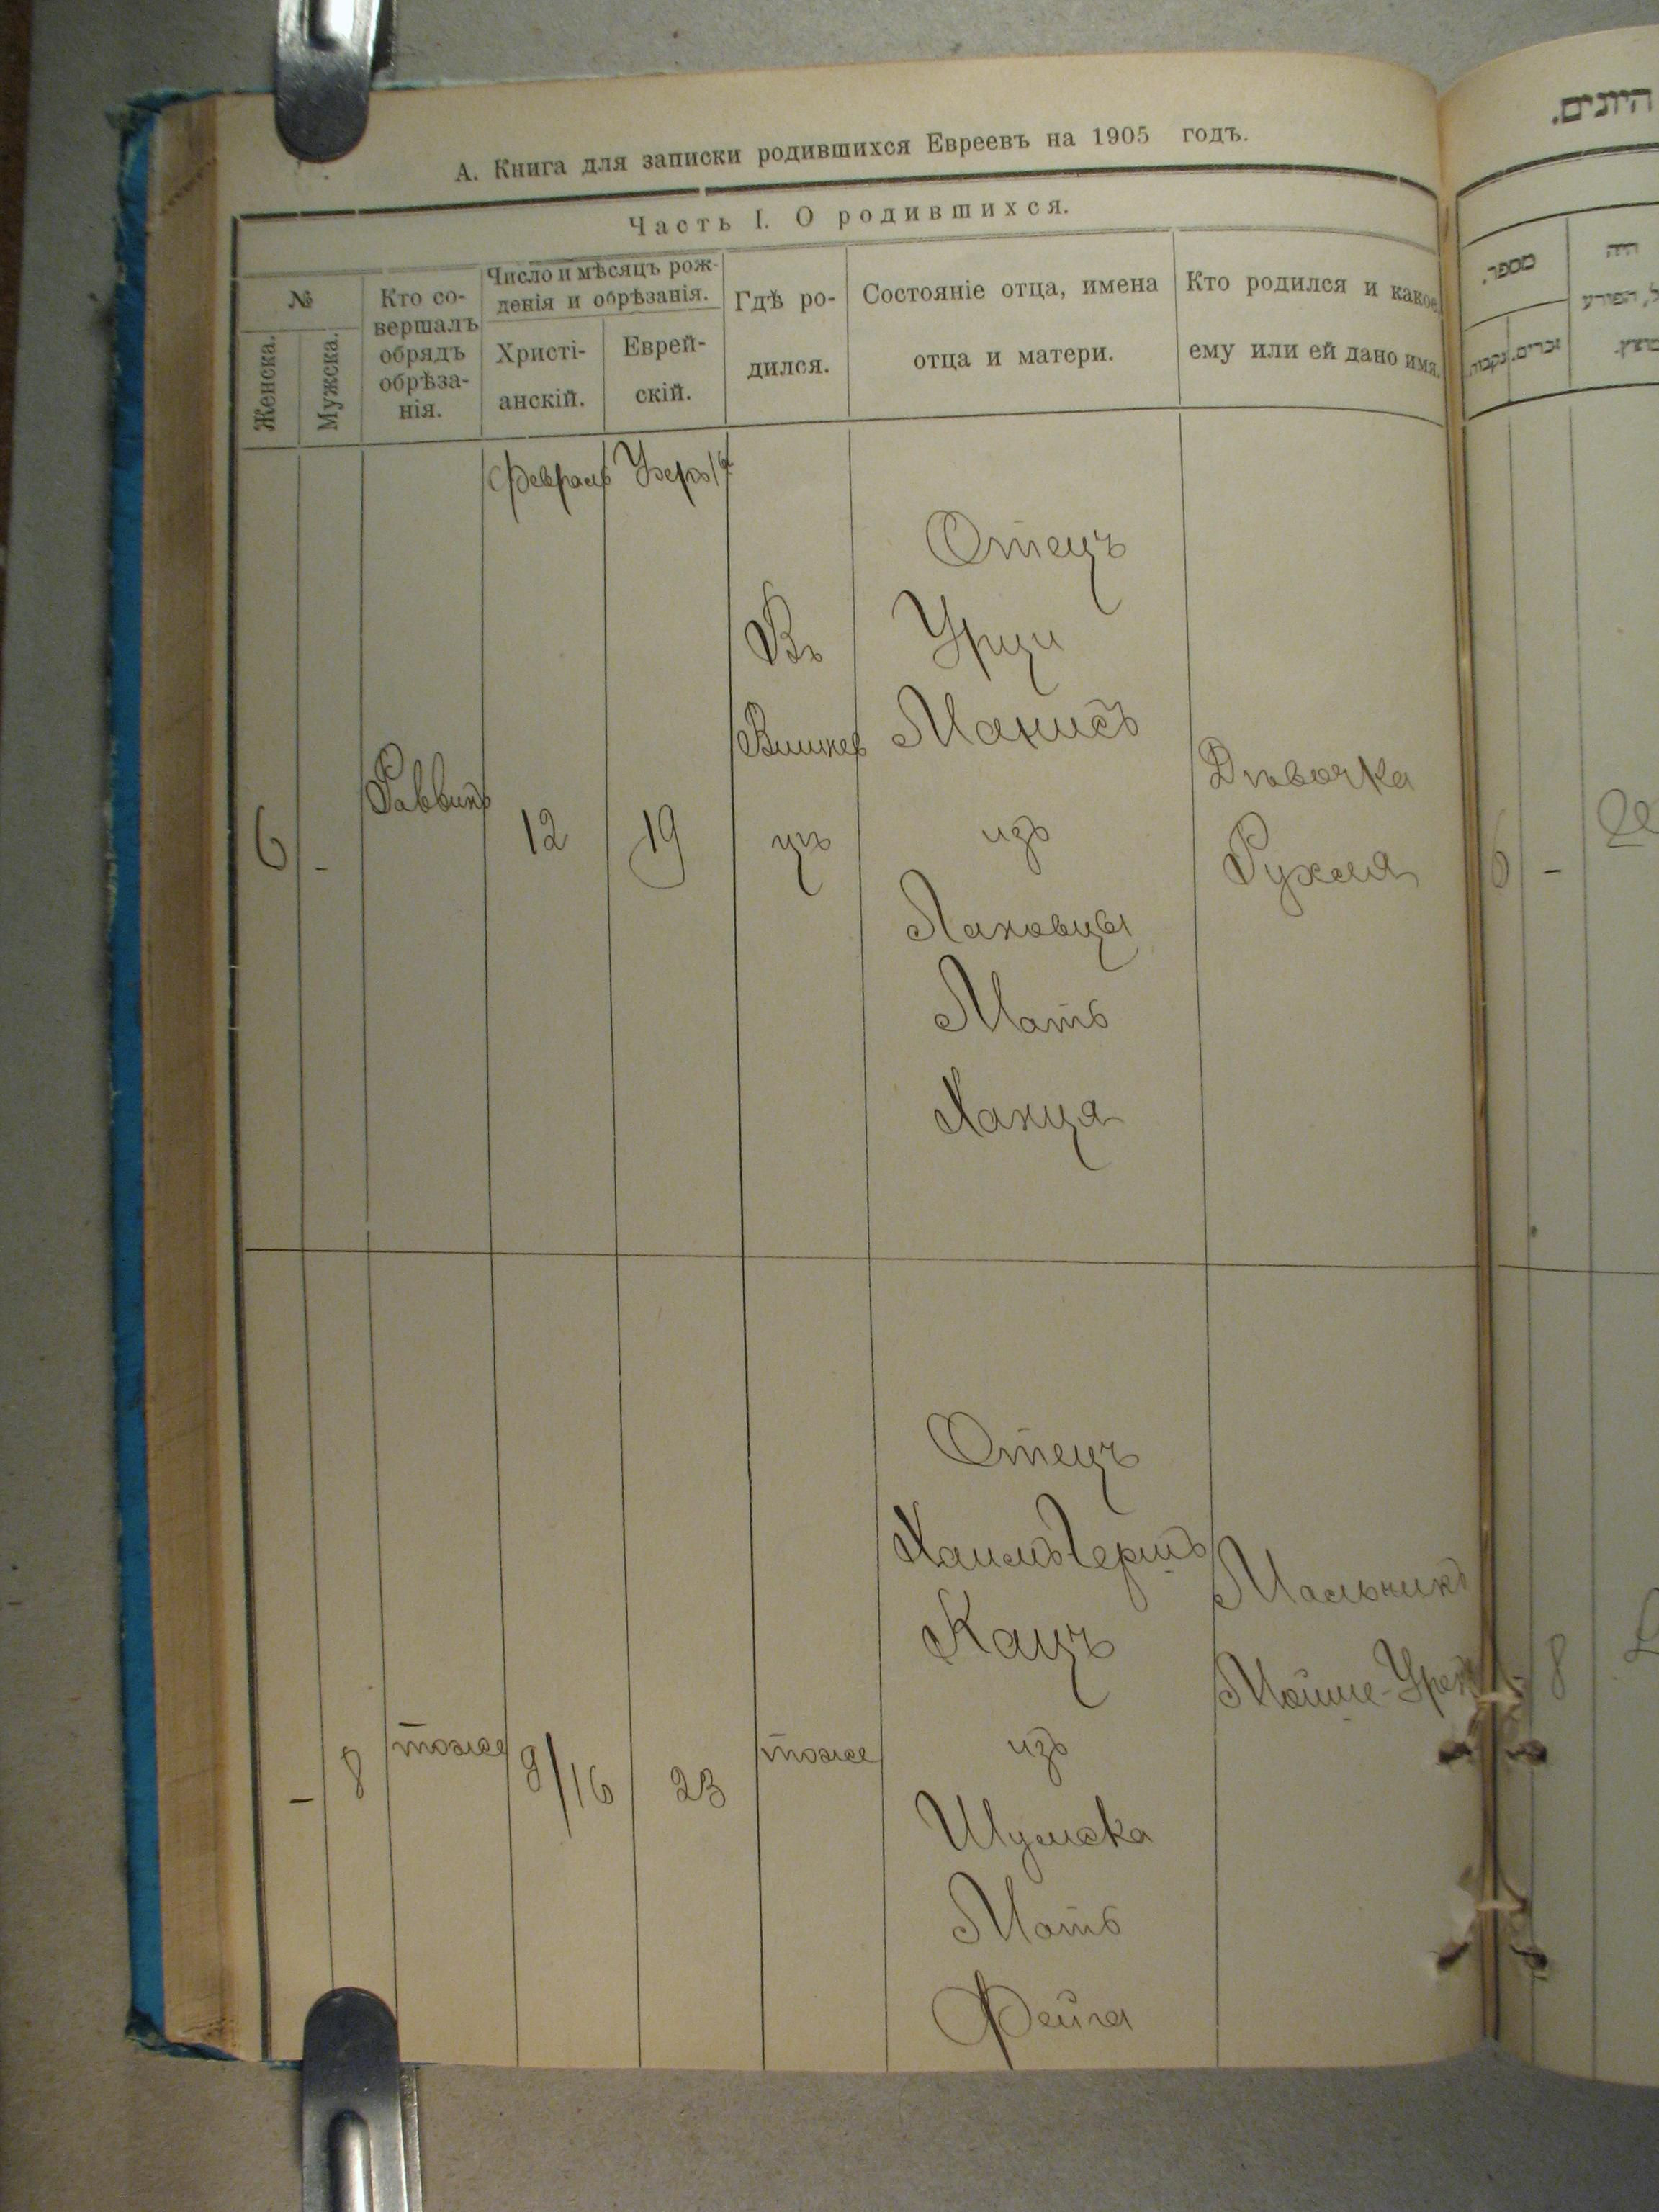 А. Книга для записки родившихся Евреевъ на 1905 годъ.
Часть I. О родившихся.
№
Женска.
Мужска.
Кто со-
вершалъ
обрядъ
обрѣза-
нія.
Число и мѣсяцъ рож-
денія и обрѣзанія.
Христі-
анскій.
Еврей-
скій.
Гдѣ ро-
дился.
Состояніе отца, имена
отца и матери.
Кто родился и какое
ему или ей дано имя.
Февраль
6
-
Раввинъ
12
19
Въ
Вишнев
цѣ
Отецъ
Манисъ
изъ
Лановцы
Мать
Ханця
Дѣвочка
Рухля
-
8
тоже
9/16
23
тоже
Отецъ
Хаимъ Гершъ
Кацъ
изъ
Шумска
Мать
Фейга
Мальчикъ
היונים.
מספר.
זכרים.
נקבות.
היה
6
-
8